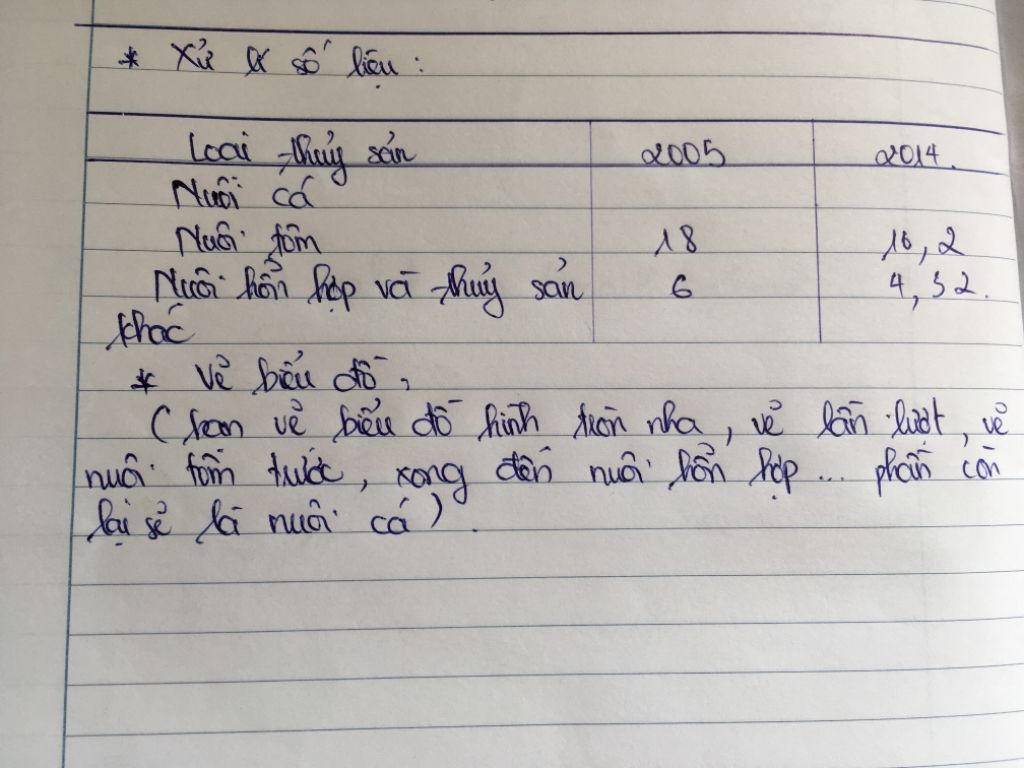 * Xử lý số liệu :
Loại thủy sản 2005 2014.
Nuôi cá
Nuôi tôm 18 16,2
Nuôi hổn hợp và thủy sản 6 4,32.
khác
* Vẽ biểu đồ,
(bạn vẽ biểu đồ hình tròn nha, vẽ lần lượt, vẽ
nuôi tôm trước, xong đến nuôi hổn hợp... phần còn
lại sẽ là nuôi cá).